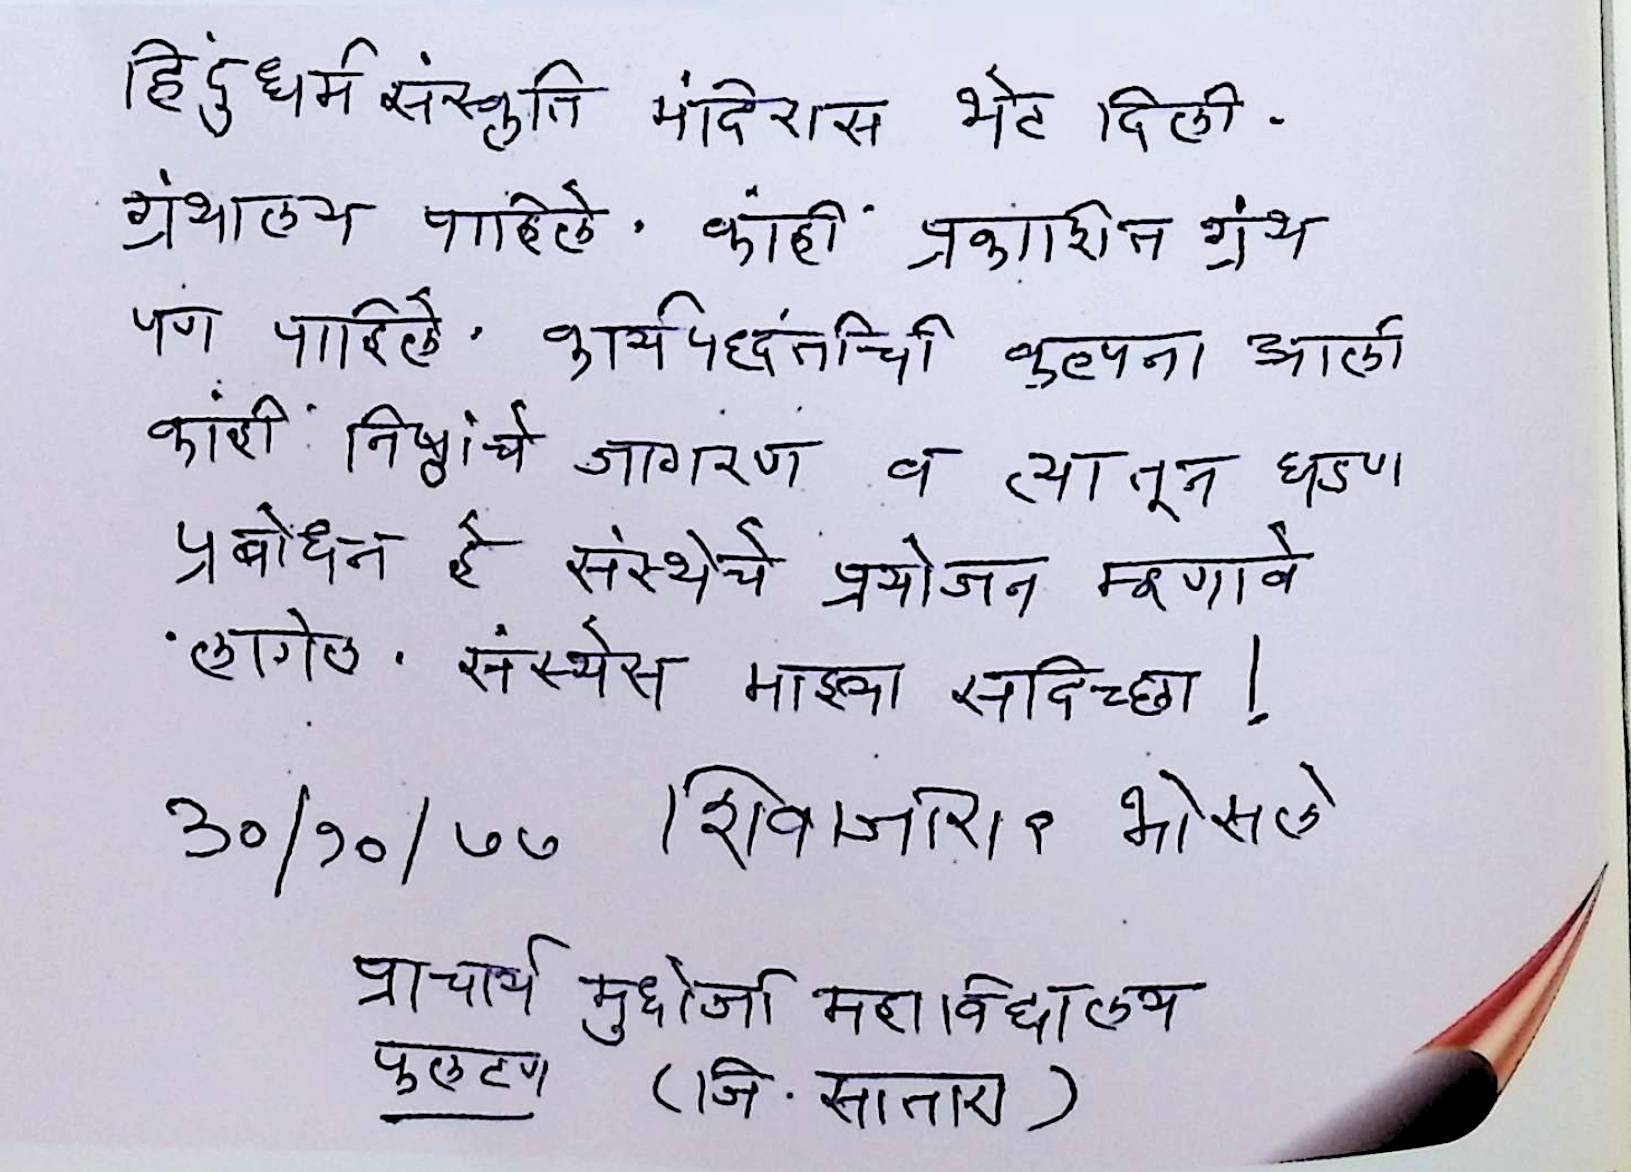 हिंदुधर्म संस्कृति मंदिरास भेट दिली.
ग्रंथालय पाहिले. कांहीं प्रकाशित ग्रंथ
पण पाहिले. कार्यपद्धतीची कल्पना आली
कांहीं निष्ठांचे जागरण व त्यातून घडण
प्रबोधन हे संस्थेचे प्रयोजन म्हणावे
लागेल. संस्थेस माझ्या सदिच्छा!
३०/१०/७७ शिवाजीराव भोसले
प्राचार्य मुधोजी महाविद्यालय
फलटण (जि. सातारा)